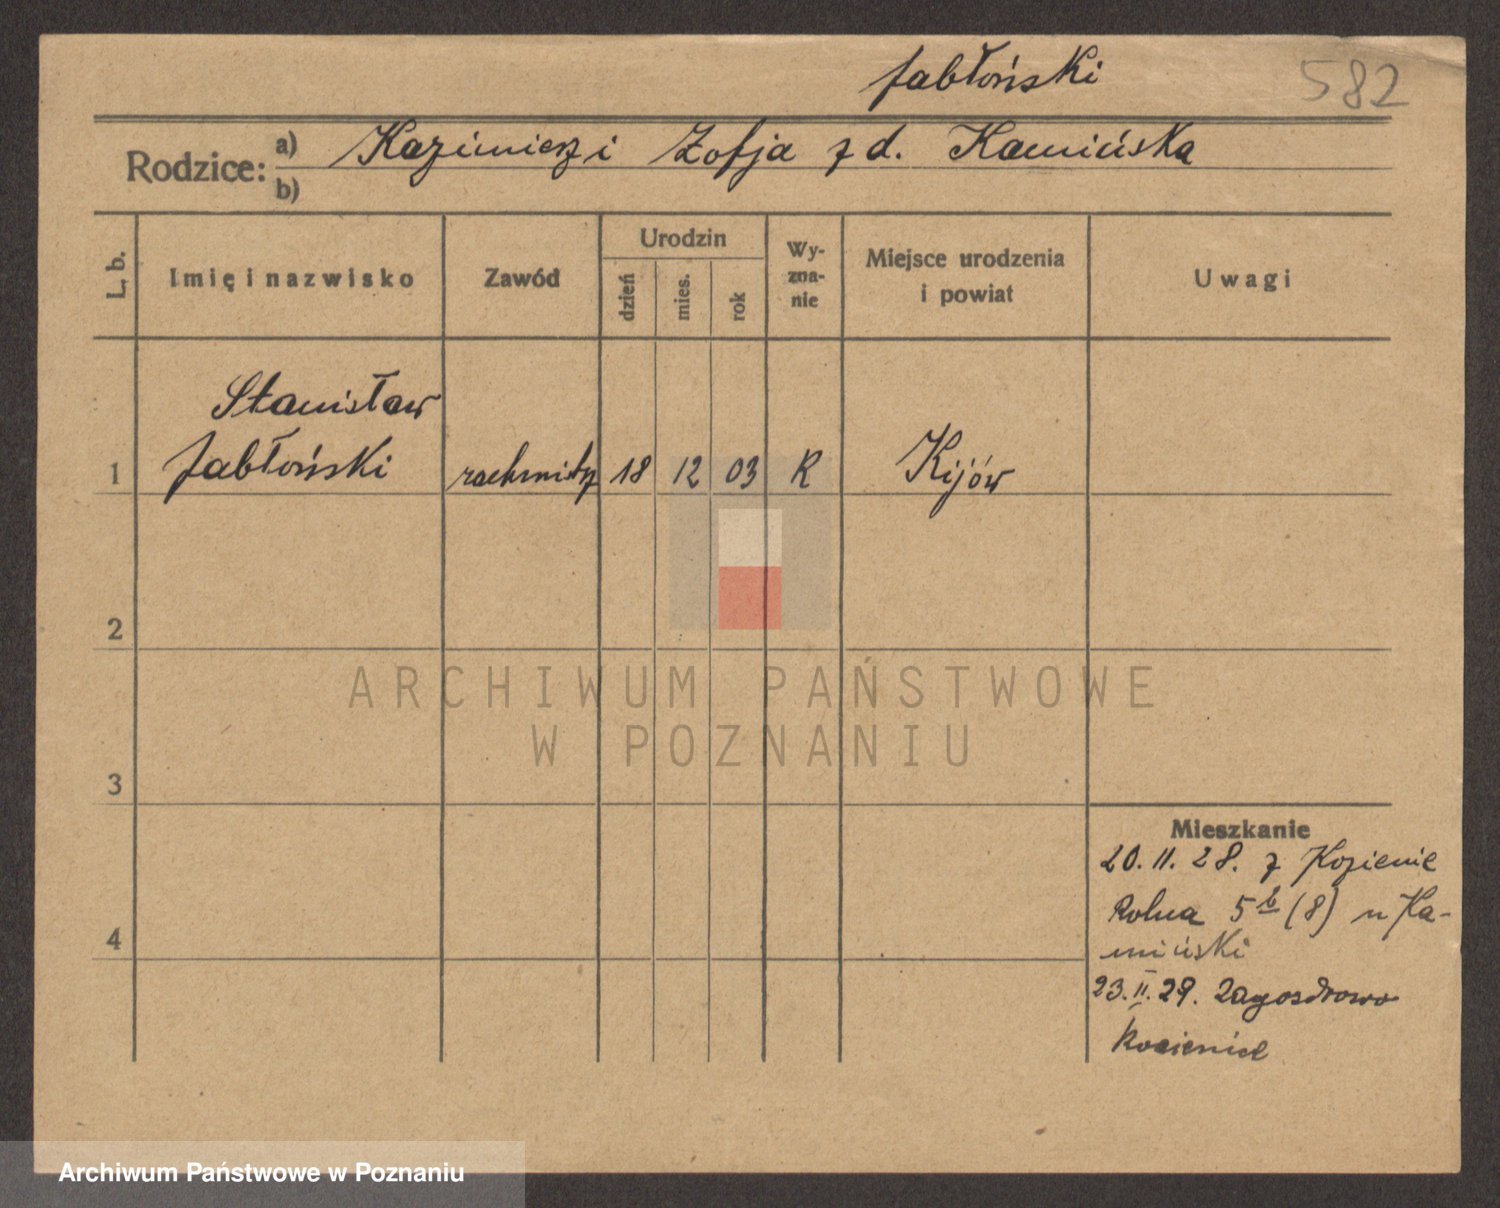 Jabłoński 582
Rodzice: a) Kazimierz i Zofja z d. Kamińska
b)
L. b. Imię i nazwisko Zawód Urodzin dzień mies. rok Wy- zna- nie Miejsce urodzenia i powiat Uwagi
Stanisław
1 Jabłoński 18 12 03 R Kijów
2
3
4
Mieszkanie
20. 11. 28. z Kozienic
Rolna 5 b (8) u Ka-
miński
23. II. 29. Zagozdrowo
Kozienice
ARCHIWUM PAŃSTWOWE
W POZNANIU
Archiwum Państwowe w Poznaniu